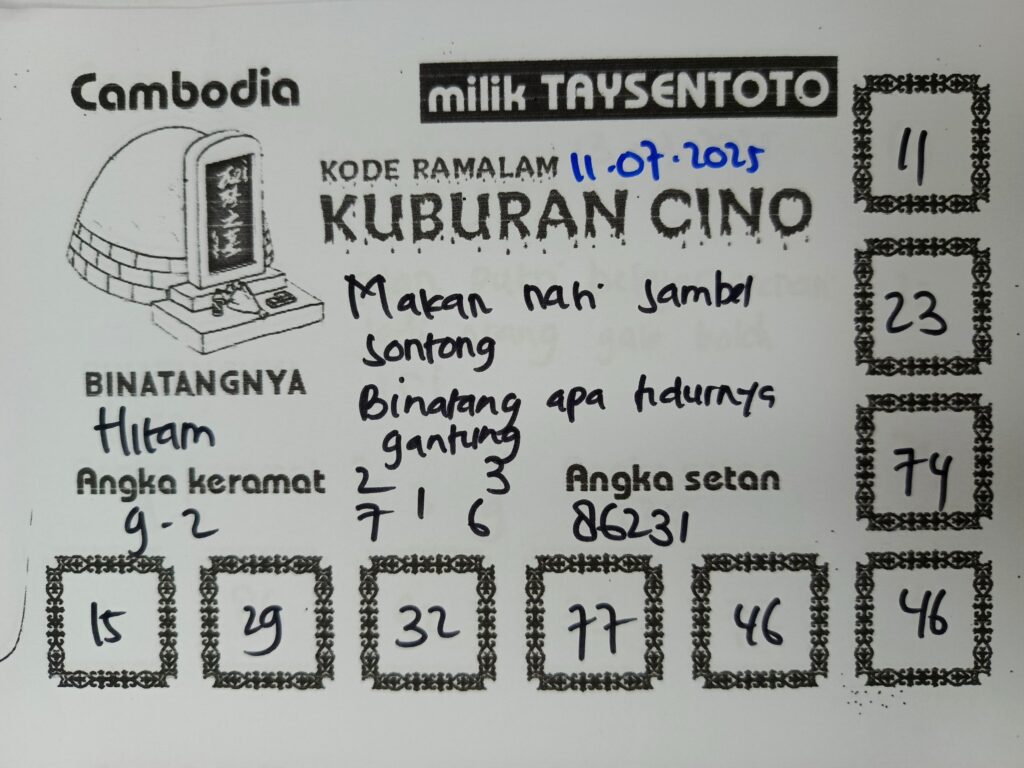 Cambodia
milik TAYSENTOTO
KODE RAMALAM 11.07.2025
KUBURAN CINO
Makan nasi sambel
sontong
Binatang apa tidurnya
gantung
BINATANGNYA
Hitam
Angka keramat
9-2
2 3
7 1 6
Angka setan
86231
11
23
74
46
15
29
32
77
46